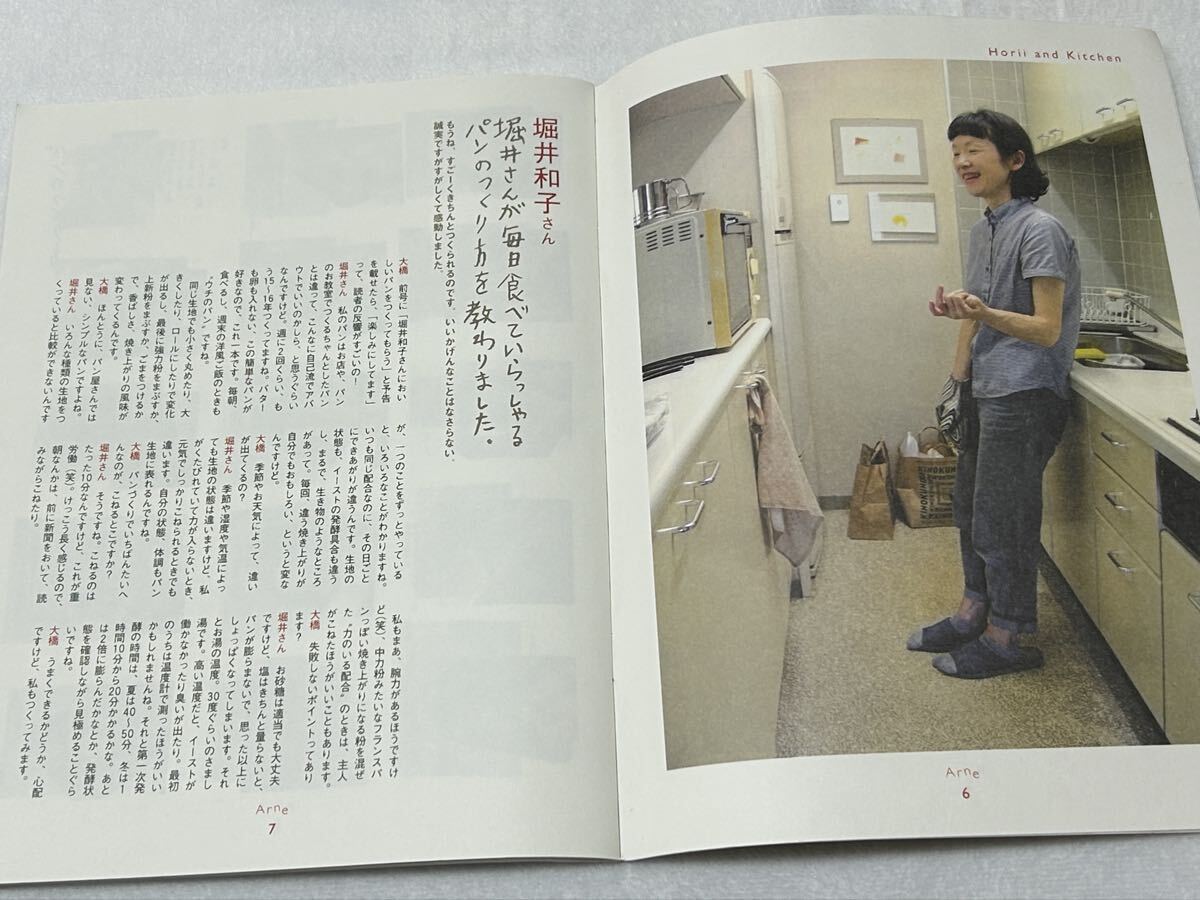 Horii and Kitchen
KINOKUNI
Arne
6
堀井和子さん
堀井さんが毎日食べていらっしゃる
パンのつくり方を教わりました。
もうね、すごーくきちんとつくられるのです。いいかげんなことはなさらない、
誠実ですがすがしくて感動しました。
大橋　前号に「堀井和子さんにおい
しいパンをつくってもらう」と予告
を載せたら、「楽しみにしてます」
って、読者の反響がすごいの！
堀井さん　私のパンはお店や、パン
のお教室でつくるちゃんとしたパン
とは違って、こんなに自己流でアバ
ウトでいいのかしら、と思うぐらい
なんですけど。週に2回くらい、も
う15〜16年つくってますね。バター
も卵も入れない、この簡単なパンが
好きなので、これ一本です。毎朝、
食べるし、週末の洋風ご飯のときも
“ウチのパン”ですね。
同じ生地でも小さく丸めたり、大
きくしたり、ロールにしたりで変化
が出るし、最後に強力粉をまぶすか、
上新粉をまぶすか、ごまをつけるか
で、香ばしさ、焼き上がりの風味が
変わってくるんです。
大橋　ほんとうに、パン屋さんでは
見ない、シンプルなパンですよね。
堀井さん　いろんな種類の生地をつ
くっていると比較ができないんです
が、一つのことをずっとやっている
と、いろいろなことがわかりますね。
いつも同じ配合なのに、その日ごと
にできあがりが違うんです。生地の
状態も、イーストの発酵具合も違う
し、まるで、生き物のようなところ
があって。毎回、違う焼き上がりが
自分でもおもしろい、というと変な
んですけど。
大橋　季節やお天気によって、違い
が出てくるの？
堀井さん　季節や湿度や気温によっ
ても生地の状態は違いますけど、私
がくたびれていて力が入らないとき、
元気でしっかりこねられるときでも
違います。自分の状態、体調もパン
生地に表れるんですね。
大橋　パンづくりでいちばんたいへ
んなのが、こねるとこですか？
堀井さん　そうですね。こねるのは
たった10分なんですけど、これが重
労働（笑）。けっこう長く感じるので、
朝なんかは、前に新聞をおいて、読
みながらこねたり。
私もまあ、腕力があるほうですけ
ど（笑）、中力粉みたいなフランスパ
ンっぽい焼き上がりになる粉を混ぜ
た“力のいる配合”のときは、主人
がこねたほうがいいこともあります。
大橋　失敗しないポイントってあり
ます？
堀井さん　お砂糖は適当でも大丈夫
ですけど、塩はきちんと量らないと、
パンが膨らまないで、思った以上に
しょっぱくなってしまいます。それ
とお湯の温度。30度ぐらいのさまし
湯です。高い温度だと、イーストが
働かなかったり臭いが出たり。最初
のうちは温度計で測ったほうがいい
かもしれませんね。それと第一次発
酵の時間は、夏は40〜50分、冬は1
時間10分から20分かかるかな。あと
は2倍に膨らんだかなとか、発酵状
態を確認しながら見極めることぐら
いですね。
大橋　うまくできるかどうか、心配
ですけど、私もつくってみます。
Arne
7